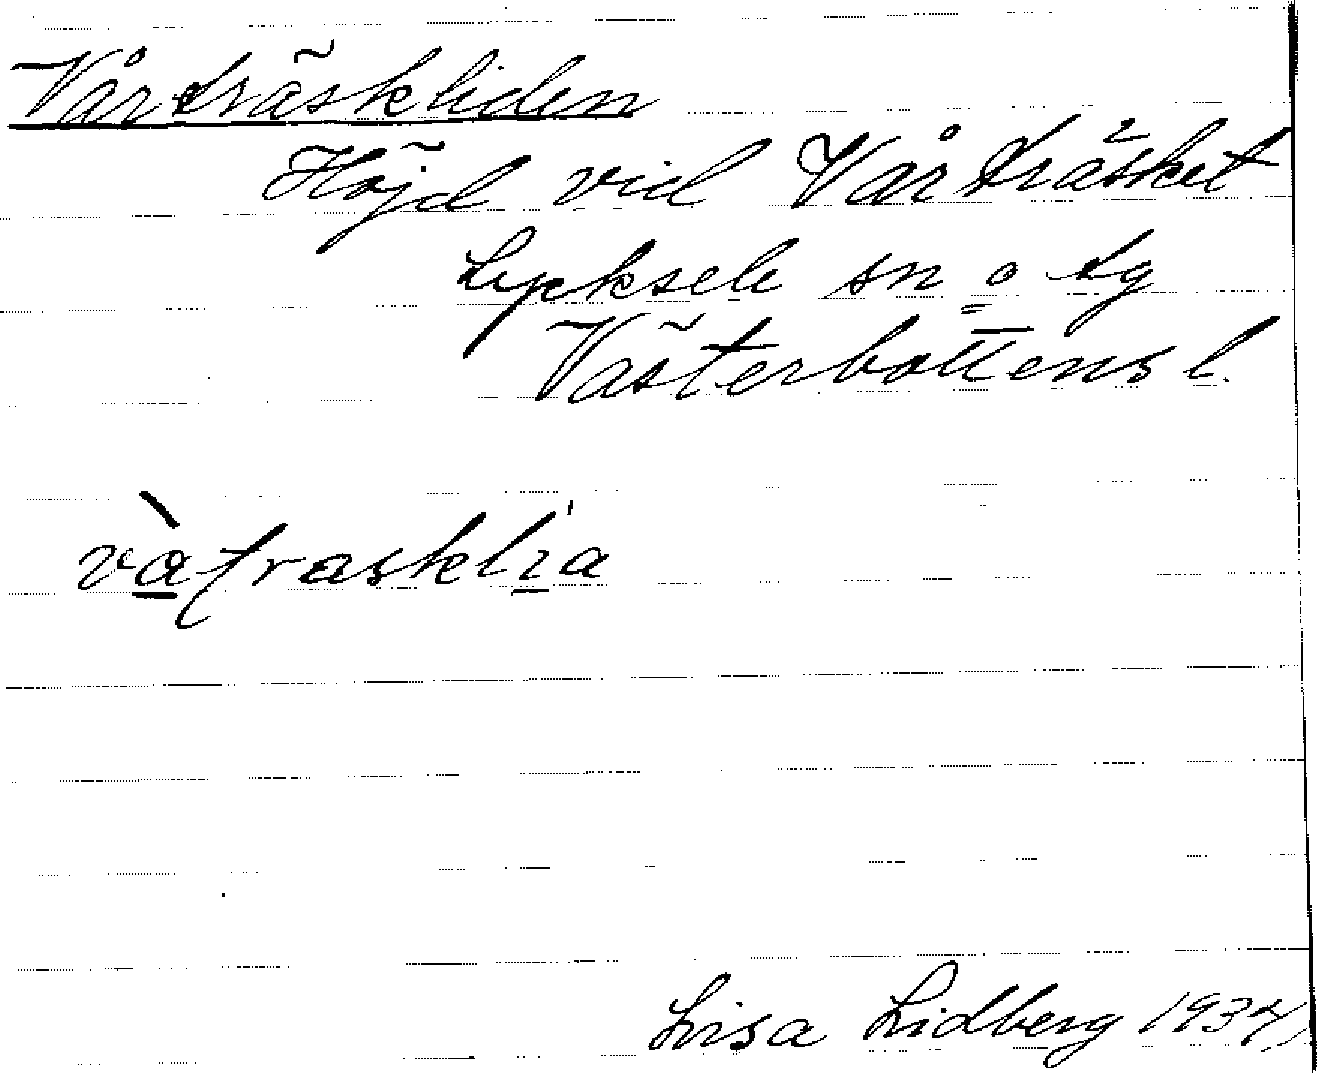 Vårträskliden
Höjd vid Vårträsket
Lycksele sn o tg
Västerbottens l.
Lisa Lidberg 1934